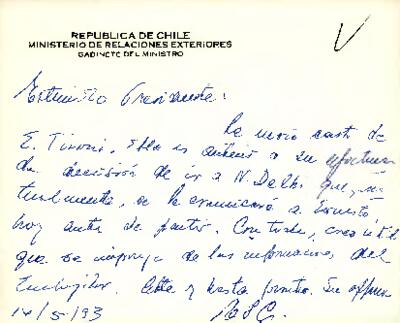 REPUBLICA DE CHILE
MINISTERIO DE RELACIONES EXTERIORES
GABINETE DEL MINISTRO
Estimado Presidente:
Le envío carta de
E. Tironi. Ella es anterior a su
decisión de ir a N. Delhi que, na
turalmente, se la comunicará a Ernesto,
hoy antes de partir. Con todo, creo útil
que se imponga de las informaciones del
Embajador. Este y hasta pronto. Su
14/5/93